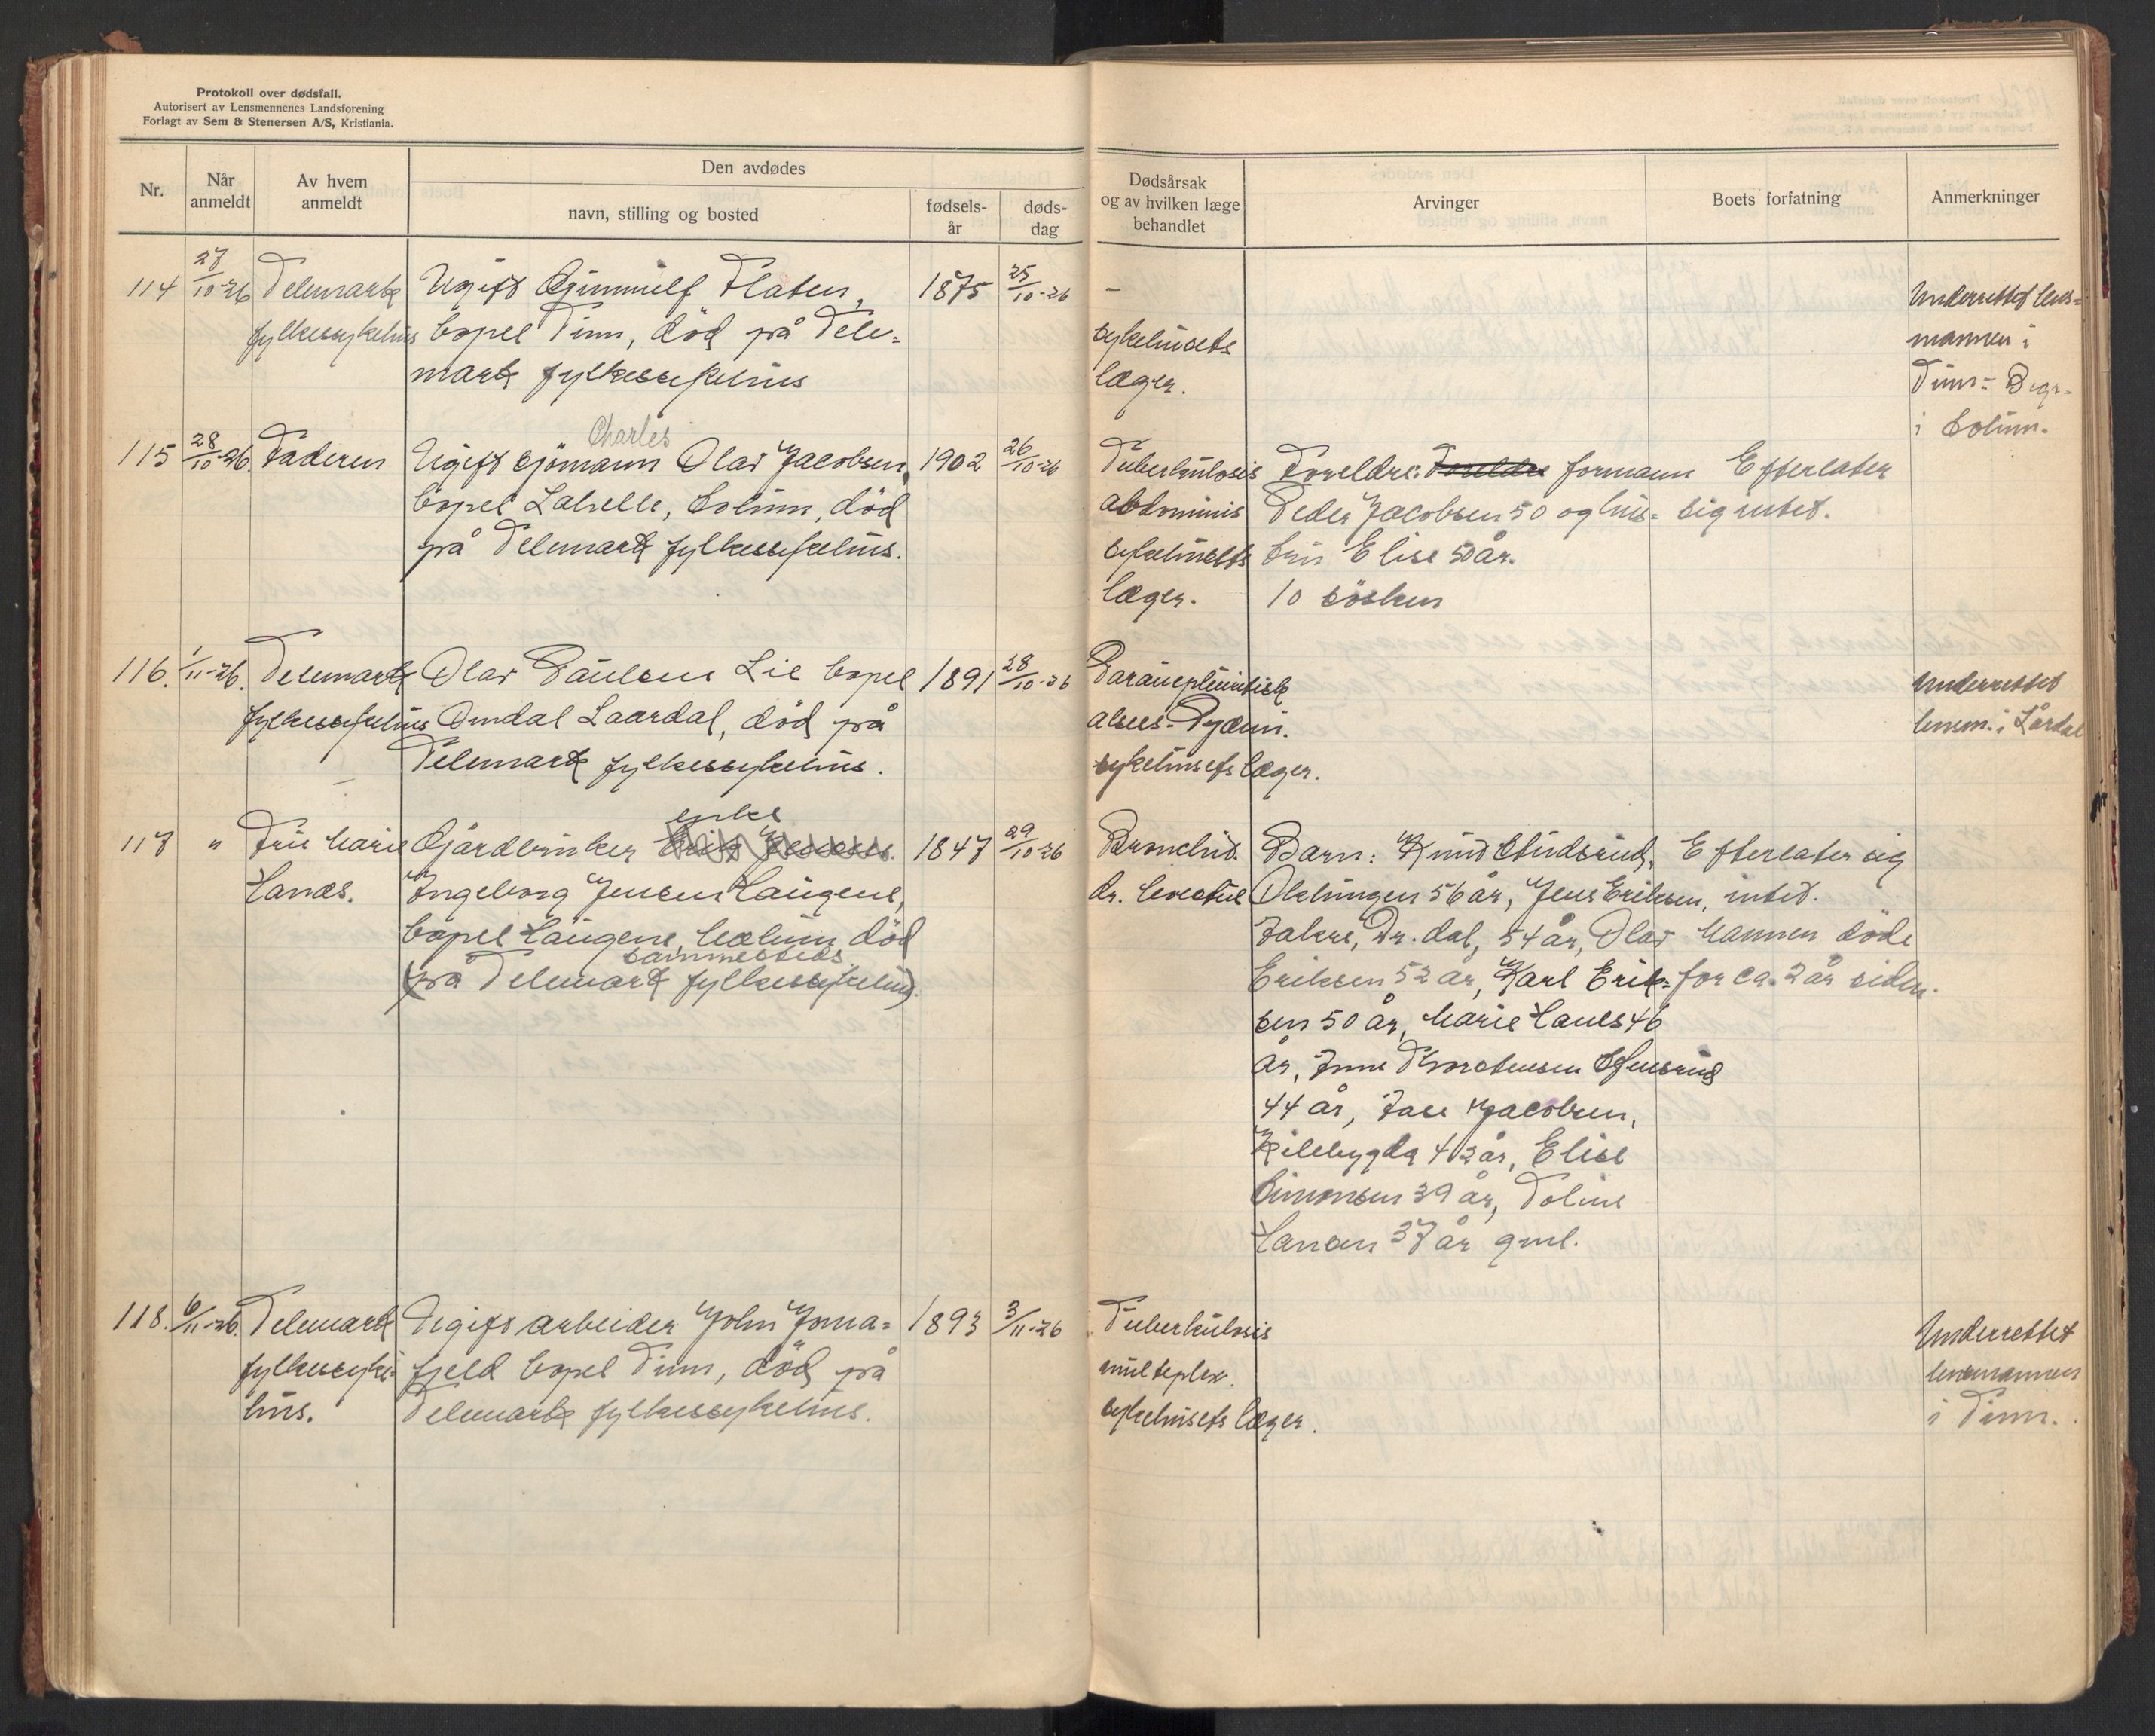 Protokoll over dødsfall.
Autorisert av Lensmennenes Landsforening
Forlagt av Sem & Stenersen A/S, Kristiania.
Nr.
Når anmeldt
Av hvem anmeldt
Den avdødes
navn, stilling og bosted
fødsels-år
døds-dag
Dødsårsak og av hvilken læge behandlet
Arvinger
Boets forfatning
Anmerkninger
114 27/10-26 Telemark Ugift Flaten, 1875 25/10-26 - Underrettet lens-
fylkessykehus bopel Tinn, död på Tele- sykehusets mannen i
mark fylkessykehus læger. Tinn - Begr.
i Solum.
Charles
115 28/10-26 Faderen Ugift sjömann Olav Jacobsen, 1902 26/10-26 Tuberkulosis Foreldre: Foreldre formann Efterlater
bopel Labelle, Solum, död abdominis Peder Jacobsen 50 og hus- sig intet.
på Telemark fylkessykehus. sykehusets tru Elise 50 år.
læger. 10 sösken
116. 1/11-26. Telemark Olav Paulsen Lie bopel 1891 28/10-26 Underrettet
fylkessykehus Omdal Laardal, död på absces - Pyæmi. lensm. i Lårdal
Telemark fylkessykehus. sykehusets læger.
enke
117 " Fru Marie Gårdbruker 1847 29/10-26 Bronchit. Barn: Knud Efterlater sig
Hanes. Ingeborg Jensen Haugene, dr. 56 år, Jens Eriksen, intet.
bopel Haugene, Mælum, död Dr. dal, 54 år, Olav Mannen döde
sammesteds
(på Telemark fylkessykehus). Eriksen 52 år, Karl Erik- for ca. 2 år siden.
sen 50 år, Marie Hanes 46
år, Thorstensen
44 år, Jacobsen,
Kilebygda 42 år, Elise
Simonsen 39 år, Toline
Hansen 37 år gml.
118. 6/11-26. Telemark Ugift arbeider John 1893 3/11-26 Tuberkulosis Underrettet
fylkessyke- fjeld bopel Tinn, död på multiplex. lensmannen
hus. Telemark fylkessykehus. sykehusets læger. i Tinn.